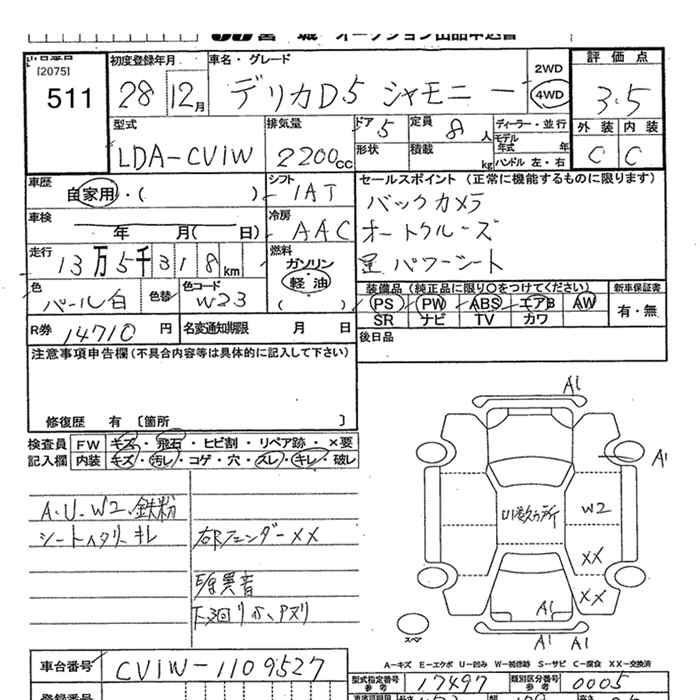 宮城 オークション出品申込書
出品番号
[2075]
511
初度登録年月
28 12 月
車名・グレード
デリカD5 シャモニー
2WD
4WD
評価点
3.5
型式
LDA-CV1W
排気量
2200 cc
ドア 5
形状
定員 8 人
積載 kg
ディーラー・並行
モデル年式 年
ハンドル 左・右
外装 内装
C C
車歴
自家用・( )
シフト
IAT
セールスポイント (正常に機能するものに限ります)
バックカメラ
オートクルーズ
パワーシート
車検
年 月( 日)
冷房
AAC
走行
13万5千318km
燃料
ガソリン
軽油
( )
色
パール白
色替
色コード
W23
装備品 (純正品に限り○をつけてください)
PS PW ABS エアB AW
SR ナビ TV カワ
新車保証書
有・無
R券 14710 円
名変通知期限 月 日
後日品
注意事項申告欄(不具合内容等は具体的に記入して下さい)
修復歴 有 [箇所 ]
検査員 FW キズ・飛石・ヒビ割・リペア跡・×要
記入欄 内装 キズ・汚レ・コゲ・穴・スレ・キレ・破レ
A.U.W2.鉄粉
シートヘタリ.キレ
右Rフェンダー××
異音
下廻りサビ
A1
A1
W2
××
××
A1
A1 A1
スペア
A-キズ E-エクボ U-凹み W-補修跡 S-サビ C-腐食 X XX-交換済
車台番号
CV1W-1109527
型式指定番号
参考
17497
類別区分番号
参考
0005
登録番号